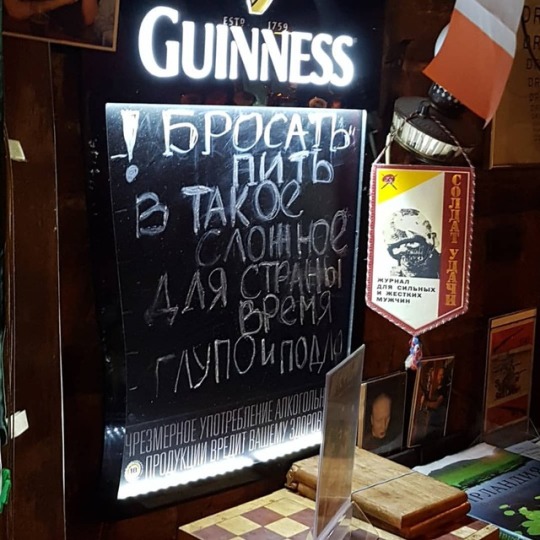 ESTD 1759
GUINNESS
! БРОСАТЬ
ПИТЬ
В ТАКОЕ
СЛОЖНОЕ
ДЛЯ СТРАНЫ
ВРЕМЯ
ГЛУПО И ПОДЛО
ЧРЕЗМЕРНОЕ УПОТРЕБЛЕНИЕ
ПРОДУКЦИИ ВРЕДИТ ВАШЕМУ
18
СОЛДАТ УДАЧИ
ЖУРНАЛ
ДЛЯ СИЛЬНЫХ
И ЖЕСТКИХ
МУЖЧИН